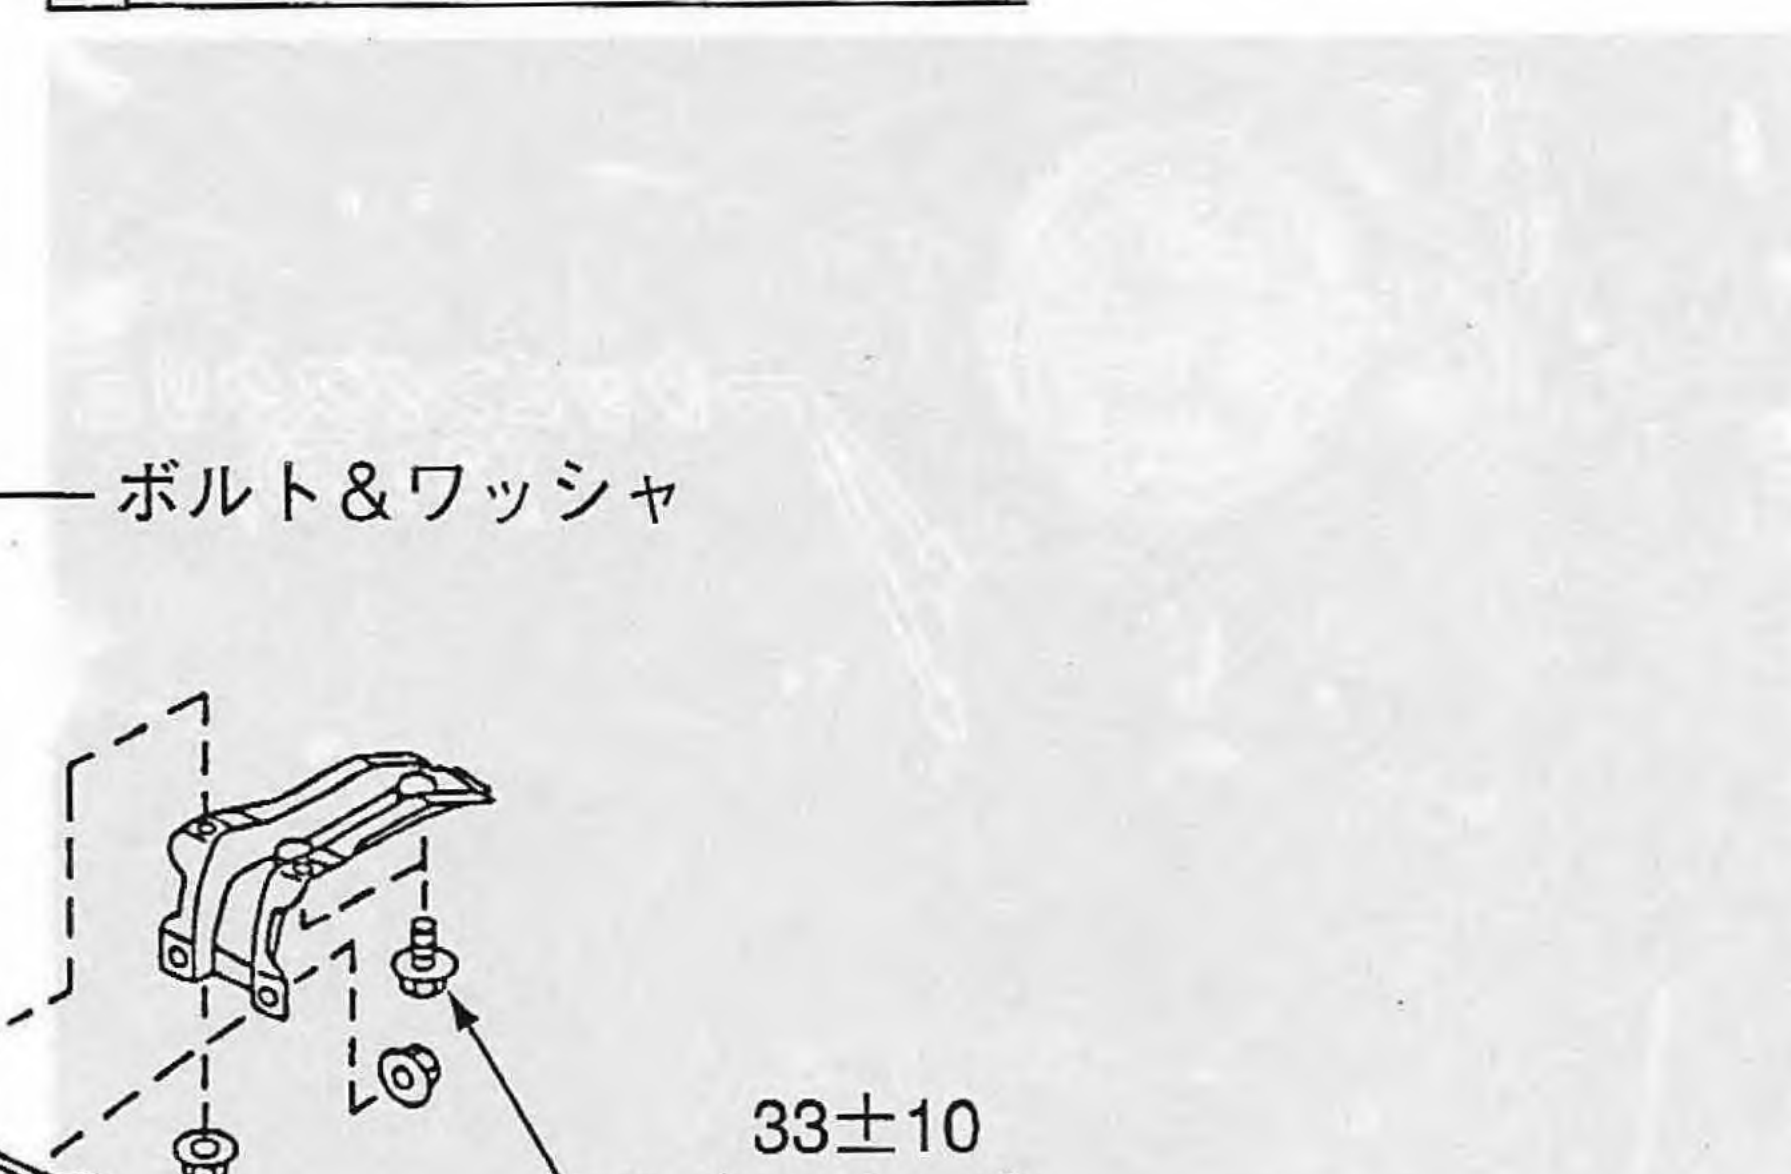 ボルト&ワッシャ
33±10